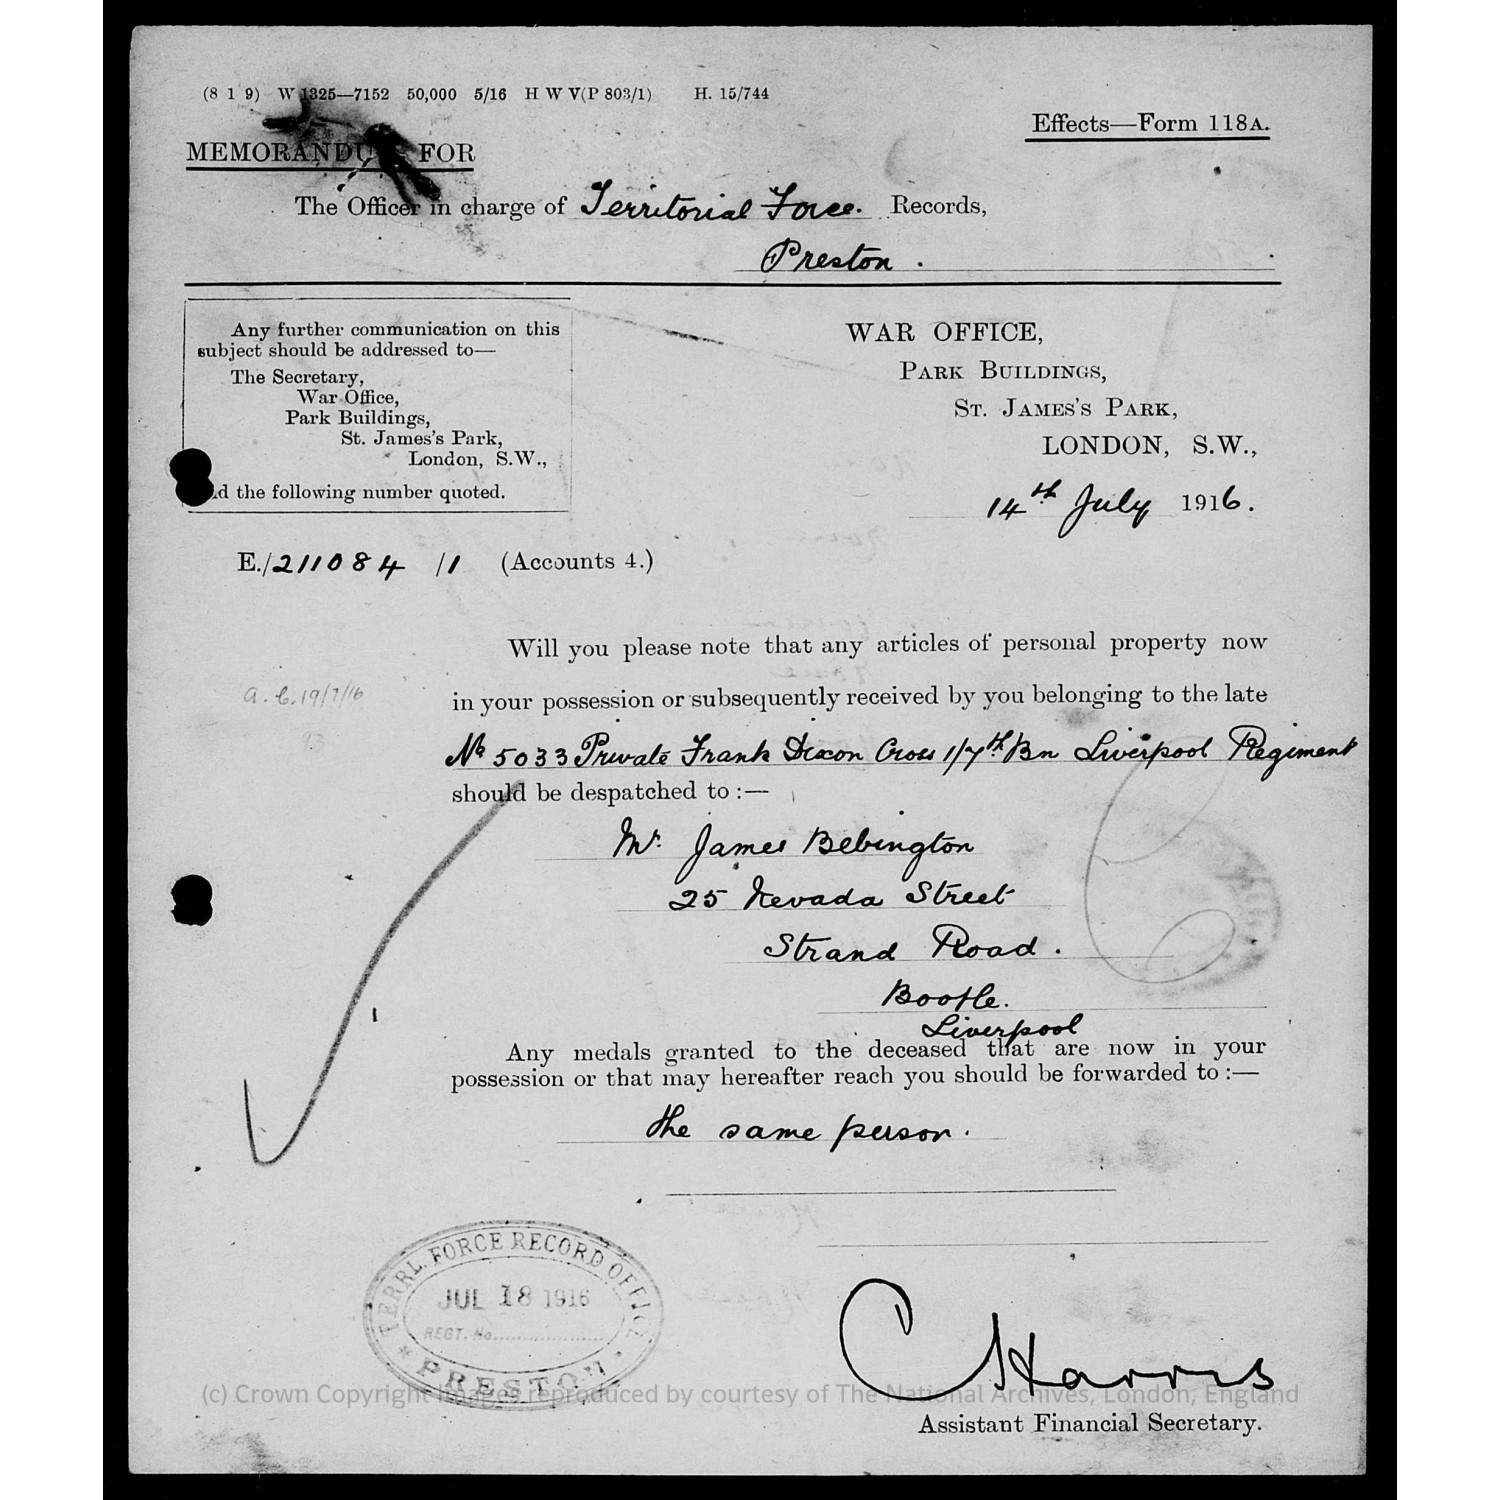 (8 1 9) W 1325—7152 50,000 5/16 H W V(P 803/1) H. 15/744
Effects—Form 118A.
MEMORANDUM FOR
The Officer in charge of Territorial Force. Records,
Preston.
Any further communication on this
subject should be addressed to—
The Secretary,
War Office,
Park Buildings,
St. James's Park,
London, S.W.,
and the following number quoted.
WAR OFFICE,
PARK BUILDINGS,
ST. JAMES'S PARK,
LONDON, S.W.,
14th July 1916.
E./211084 /1 (Accounts 4.)
Will you please note that any articles of personal property now
a.c. 19/7/16
93
in your possession or subsequently received by you belonging to the late
No 5033 Private Frank Dixon Cross 1/7th Bn Liverpool Regiment
should be despatched to :—
Mr. James Bebington
25 Nevada Street
Strand Road.
Bootle.
Liverpool
Any medals granted to the deceased that are now in your
possession or that may hereafter reach you should be forwarded to :—
the same person.
TERRL. FORCE RECORD OFFICE
JUL 18 1916
REGT. No.
* PRESTON *
C Harris
(c) Crown Copyright Images reproduced by courtesy of The National Archives, London, England
Assistant Financial Secretary.